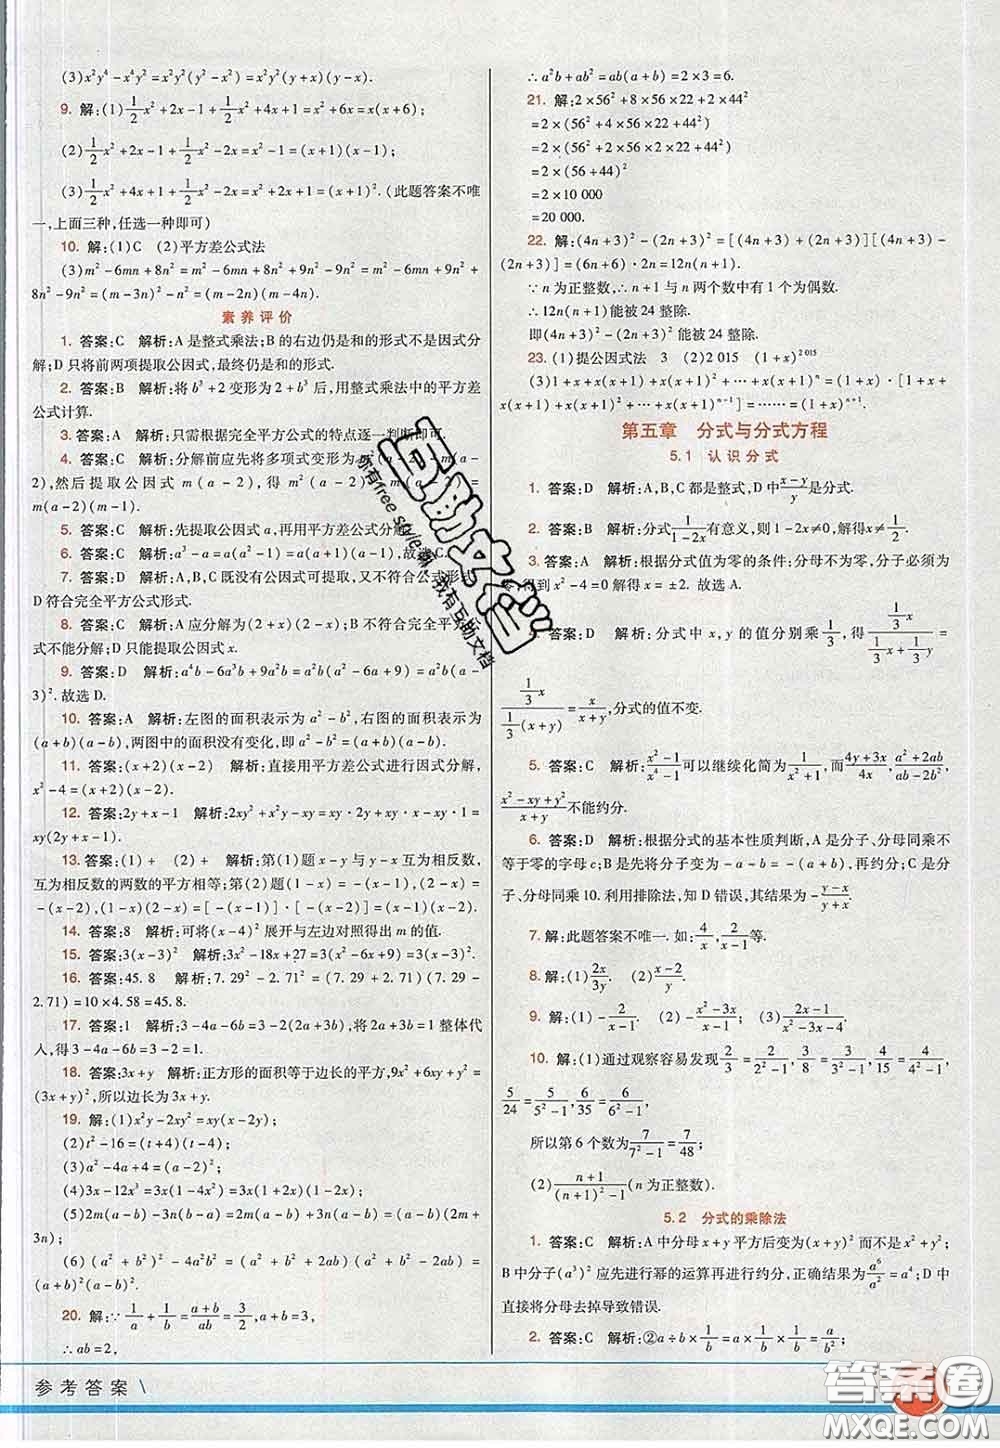 (3)x²y⁴-x⁴y²=x²y²(y²-x²)=x²y²(y+x)(y-x).
9. 解:(1)1/2x²+2x-1+1/2x²+4x+1=x²+6x=x(x+6);
(2)1/2x²+2x-1+1/2x²-2x=x²-1=(x+1)(x-1);
(3)1/2x²+4x+1+1/2x²-2x=x²+2x+1=(x+1)².(此题答案不唯
一,上面三种,任选一种即可)
10. 解:(1)C (2)平方差公式法
(3)m²-6mn+8n²=m²-6mn+8n²+n²-n²=m²-6mn+
8n²-9n²=(m-3n)²-n²=(m-2n)(m-4n).
素养评价
1. 答案:C 解析:A是整式乘法;B的右边仍是和的形式不是因式分
解;D只将前两项提取公因式,最终仍是和的形式.
2. 答案:B 解析:将b³+2变形为2+b³后,用整式乘法中的平方差
公式计算.
3. 答案:A 解析:只需根据完全平方公式的特点逐一判断即可.
4. 答案:C 解析:分解前应先将多项式变形为m²(a-2)-m(a-
2),然后提取公因式m(a-2),得m²(a-2)-m(a-2)=
m(a-2)(m-1).
5. 答案:C 解析:先提取公因式a,再用平方差公式分解.
6. 答案:C 解析:a³-a=a(a²-1)=a(a+1)(a-1),故选C.
7. 答案:D 解析:A,B,C既没有公因式可提取,又不符合公式形式,
D符合完全平方公式形式.
8. 答案:C 解析:A应分解为(2+x)(2-x);B不符合完全平方公
式不能分解;D只能提取公因式x.
9. 答案:D 解析:a⁴b-6a³b+9a²b=a²b(a²-6a+9)=a²b(a-
3)².故选D.
10. 答案:A 解析:左图的面积表示为a²-b²,右图的面积表示为
(a+b)(a-b),两图中的面积没有变化,即a²-b²=(a+b)(a-b).
11. 答案:(x+2)(x-2) 解析:直接用平方差公式进行因式分解,
x²-4=(x+2)(x-2).
12. 答案:2y+x-1 解析:2xy²+x²y-xy=xy·2y+xy·x-xy·1=
xy(2y+x-1).
13. 答案:(1)+ (2)+ 解析:第(1)题x-y与y-x互为相反数,
互为相反数的两数的平方相等;第(2)题(1-x)=-(x-1),(2-x)=
-(x-2),(1-x)(2-x)=[-(x-1)]·[-(x-2)]=(x-1)(x-2).
14. 答案:8 解析:可将(x-4)²展开与左边对照得出m的值.
15. 答案:3(x-3)² 解析:3x²-18x+27=3(x²-6x+9)=3(x-3)².
16. 答案:45.8 解析:7.29²-2.71²=(7.29+2.71)×(7.29-
2.71)=10×4.58=45.8.
17. 答案:1 解析:3-4a-6b=3-2(2a+3b),将2a+3b=1整体代
入,得3-4a-6b=3-2×1=1.
18. 答案:3x+y 解析:正方形的面积等于边长的平方,9x²+6xy+y²=
(3x+y)²,所以边长为3x+y.
19. 解:(1)x²y-2xy²=xy(x-2y);
(2)t²-16=(t+4)(t-4);
(3)a²-4a+4=(a-2)²;
(4)3x-12x³=3x(1-4x²)=3x(1+2x)(1-2x);
(5)2m(a-b)-3n(b-a)=2m(a-b)+3n(a-b)=(a-b)(2m+
3n);
(6)(a²+b²)²-4a²b²=(a²+b²+2ab)(a²+b²-2ab)=(a+b)²(a-b)².
20. 解:∵1/a+1/b=(a+b)/ab=3/2,a+b=3,
∴ab=2,
∴a²b+ab²=ab(a+b)=2×3=6.
21. 解:2×56²+8×56×22+2×44²
=2×(56²+4×56×22+44²)
=2×(56²+2×56×44+44²)
=2×(56+44)²
=2×10 000
=20 000.
22. 解:(4n+3)²-(2n+3)²=[(4n+3)+(2n+3)][(4n+3)-
(2n+3)]=(6n+6)·2n=12n(n+1).
∵n为正整数,∴n+1与n两个数中有一个为偶数.
∴12n(n+1)能被24整除.
即(4n+3)²-(2n+3)²能被24整除.
23. (1)提公因式法 3 (2)2 015 (1+x)²⁰¹⁵
(3)1+x+x(x+1)+x(x+1)²+…+x(x+1)ⁿ=(1+x)·[1+x+
x(x+1)+x(x+1)²+…+x(x+1)ⁿ⁻¹]=……=(1+x)ⁿ⁺¹.
第五章 分式与分式方程
5.1 认识分式
1. 答案:D 解析:A,B,C都是整式,D中(x-y)/y是分式.
2. 答案:B 解析:分式1/(1-2x)有意义,则1-2x≠0,解得x≠1/2.
3. 答案:A 解析:根据分式值为零的条件:分母不为零,分子必须为
零,得到x²-4=0解得x=±2.故选A.
答案:D 解析:分式中x,y的值分别乘1/3,得(1/3x)/(1/3x+1/3y)=
(1/3x)/(1/3(x+y))=x/(x+y),分式的值不变.
5. 答案:C 解析:(x²-1)/(x⁴-1)可以继续化简为1/(x²+1),而(4y+3x)/4x,(a²+2ab)/(ab-2b²),
(x²-xy+y²)/(x+y)不能约分.
6. 答案:D 解析:根据分式的基本性质判断,A是分子、分母同乘不
等于零的字母c;B是先将分子变为-a-b=-(a+b),再约分;C是分
子、分母同乘10.利用排除法,知D错误,其正确结果为-(y-x)/(y+x).
7. 解:此题答案不唯一.如:4/x,2/(x-1)等.
8. 解:(1)2x/3y. (2)(x-2)/y.
9. 解:(1)-2/(x-1). (2)-(x²-3x)/(x-1); (3)2x/(x²-3x-4).
10. 解:(1)通过观察容易发现2/3=2/(2²-1),3/8=3/(3²-1),4/15=4/(4²-1),
5/24=5/(5²-1),6/35=6/(6²-1),
所以第6个数为7/(7²-1)=7/48;
(2)(n+1)/((n+1)²-1)(n为正整数).
5.2 分式的乘除法
1. 答案:C 解析:A中分母x+y平方后变为(x+y)²而不是x²+y²;
B中分子(a³)²应先进行幂的运算再进行约分,正确结果为a⁶/a²=a⁴;D中
直接将分母去掉导致错误.
2. 答案:C 解析:②a÷b×1/b=a×1/b×1/b=a/b²;
参考答案
互助文档
你有free style吗 我有互助文档
答案圈
MXQE.COM